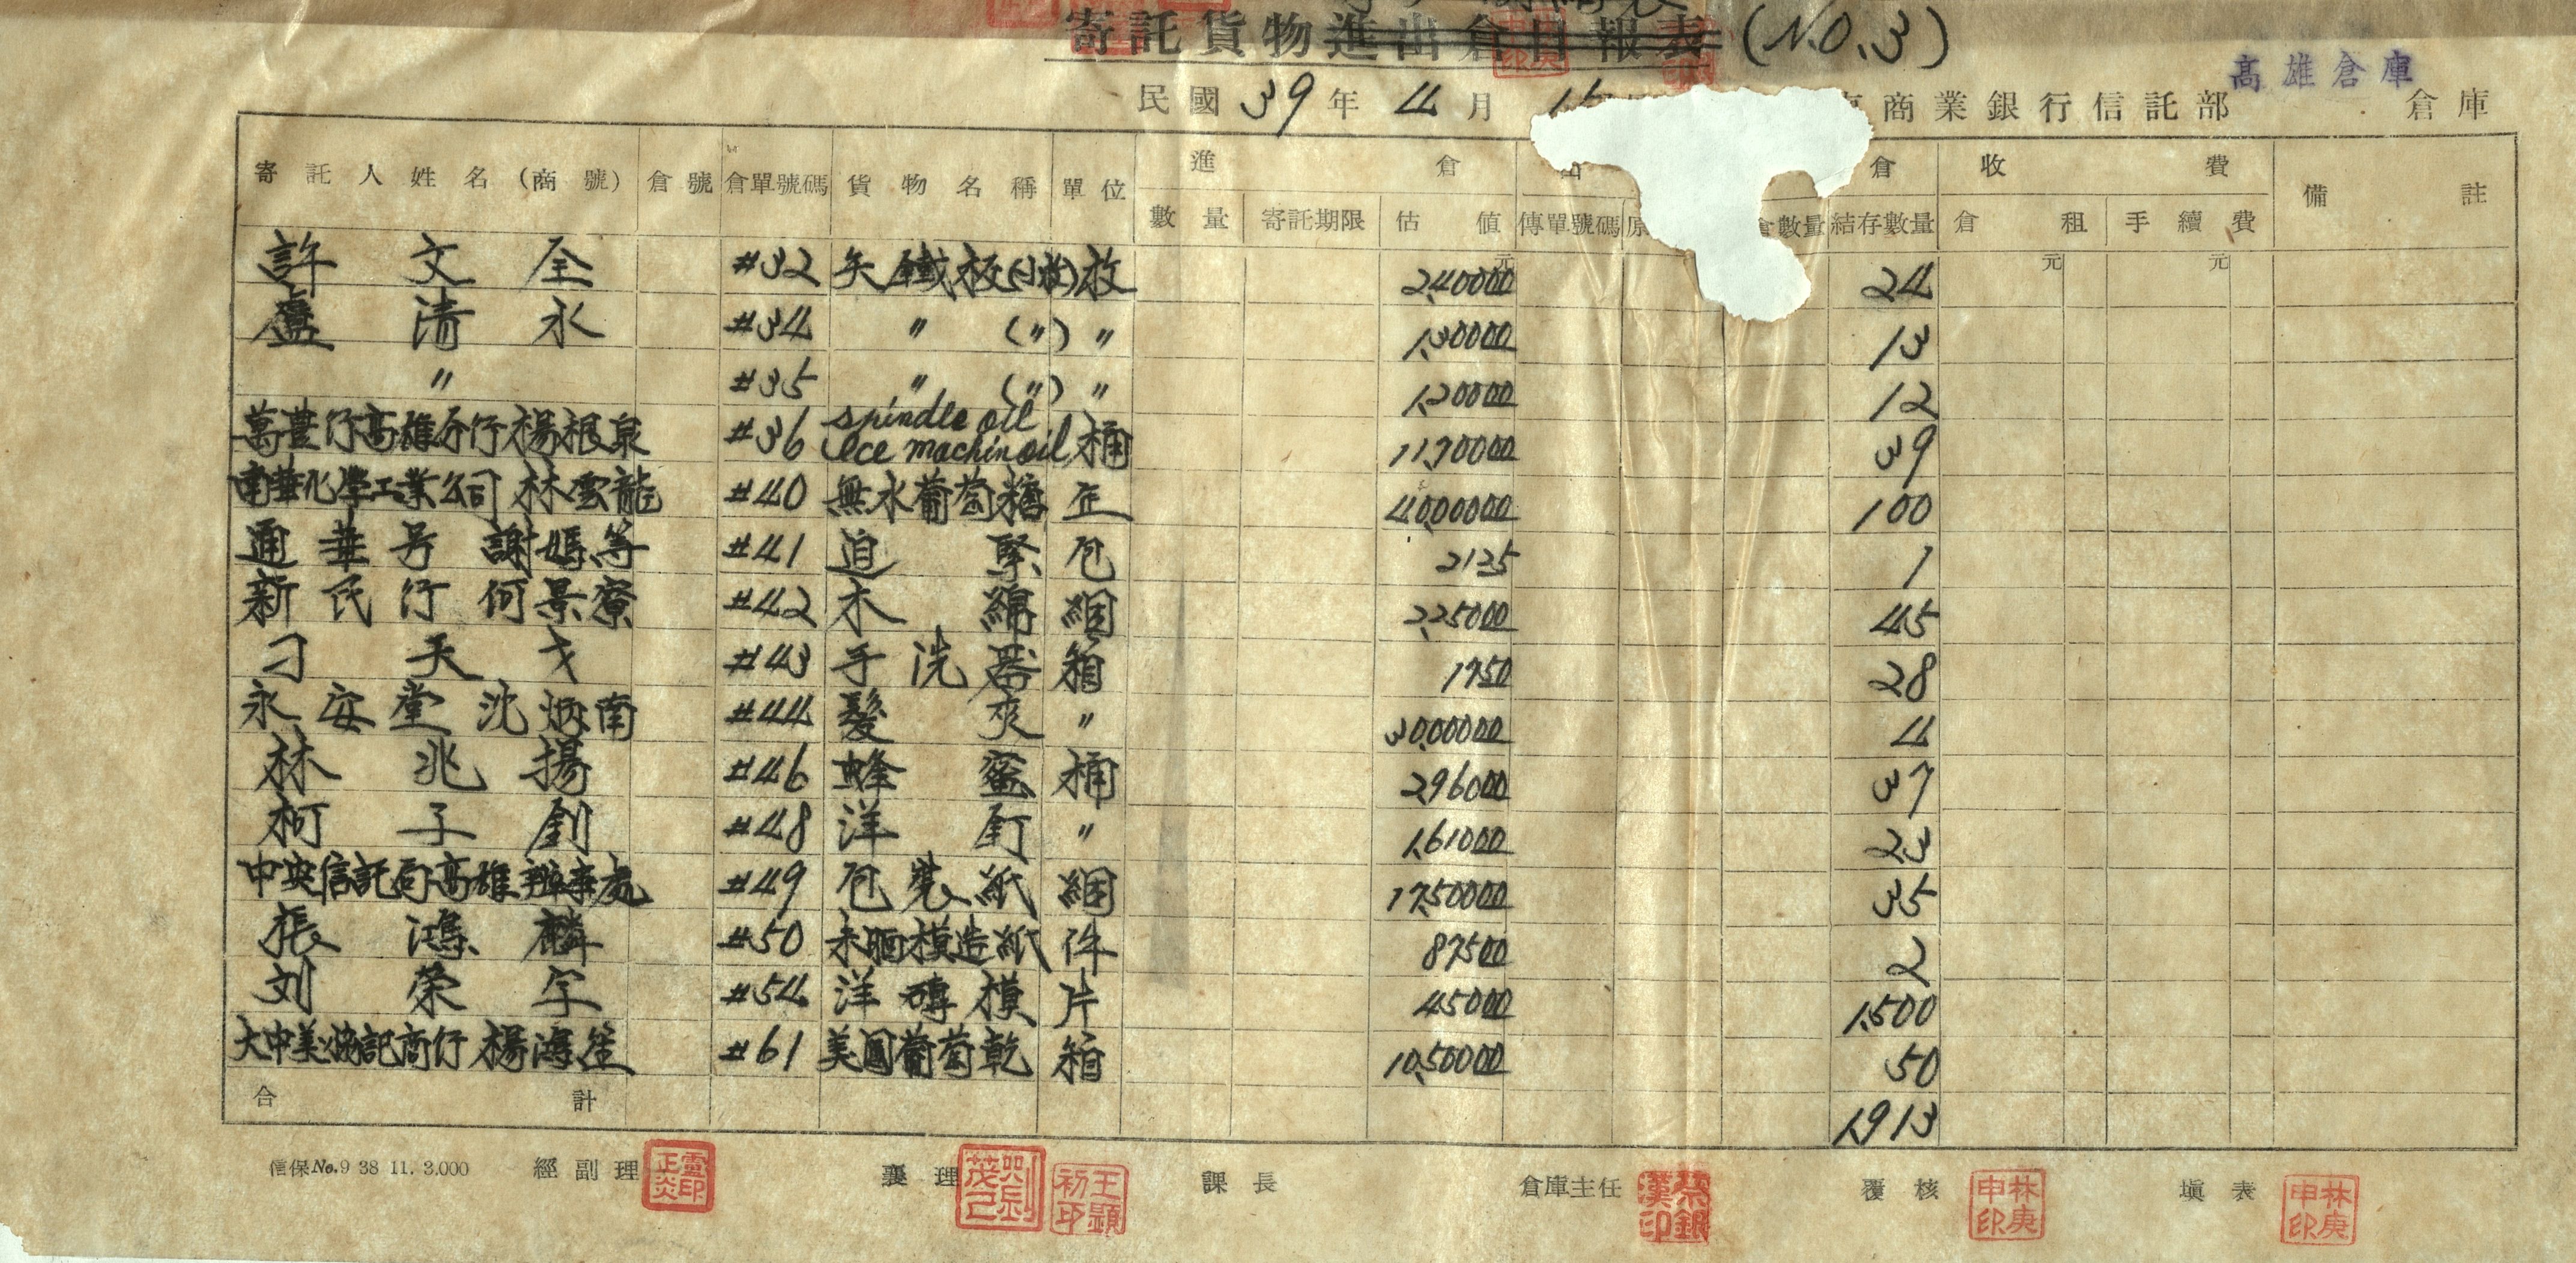 寄託貨物進出倉日報表 (NO.3)
高雄倉庫
民國 39 年 4 月 商業銀行信託部 倉庫
寄託人姓名(商號) 倉號 倉單號碼 貨物名稱 單位 進倉 倉 收費 備註
數量 寄託期限 估值 傳單號碼 原 倉數量 結存數量 倉租 手續費
元 元 元
許文全 #32 矢鐵板(小枚) 枚 2,400.00 24
盧清永 #34 〃 (〃) 〃 1,300.00 13
〃 #35 〃 (〃) 〃 1,200.00 12
萬豊行高雄分行楊根泉 #36 spindle oil Ice machin oil 桶 11,700.00 39
南華化學工業公司 林雲龍 #40 無水葡萄糖 正 40,000.00 100
通華号 謝媽等 #41 迫緊 包 21.35 1
新民行 何景寮 #42 木綿 綑 2,250.00 45
刁天戈 #43 手洗器 箱 17.50 28
永安堂 沈炳南 #44 髮夾 〃 30,000.00 4
林兆揚 #46 蜂蜜 桶 2,960.00 37
柯子釗 #48 洋釘 〃 1,610.00 23
中央信託局高雄辦事處 #49 包裝紙 綑 17,500.00 35
張鴻麟 #50 未晒模造紙 件 875.00 2
刘榮宇 #54 洋磚模 片 450.00 1,500
大中美 記商行 楊鴻笙 #61 美國葡萄乾 箱 10,500.00 50
合計 1,913
信保No.9 38 11. 3.000 經副理 襄理 課長 倉庫主任 覆核 塡表
林庚申印 林庚申印